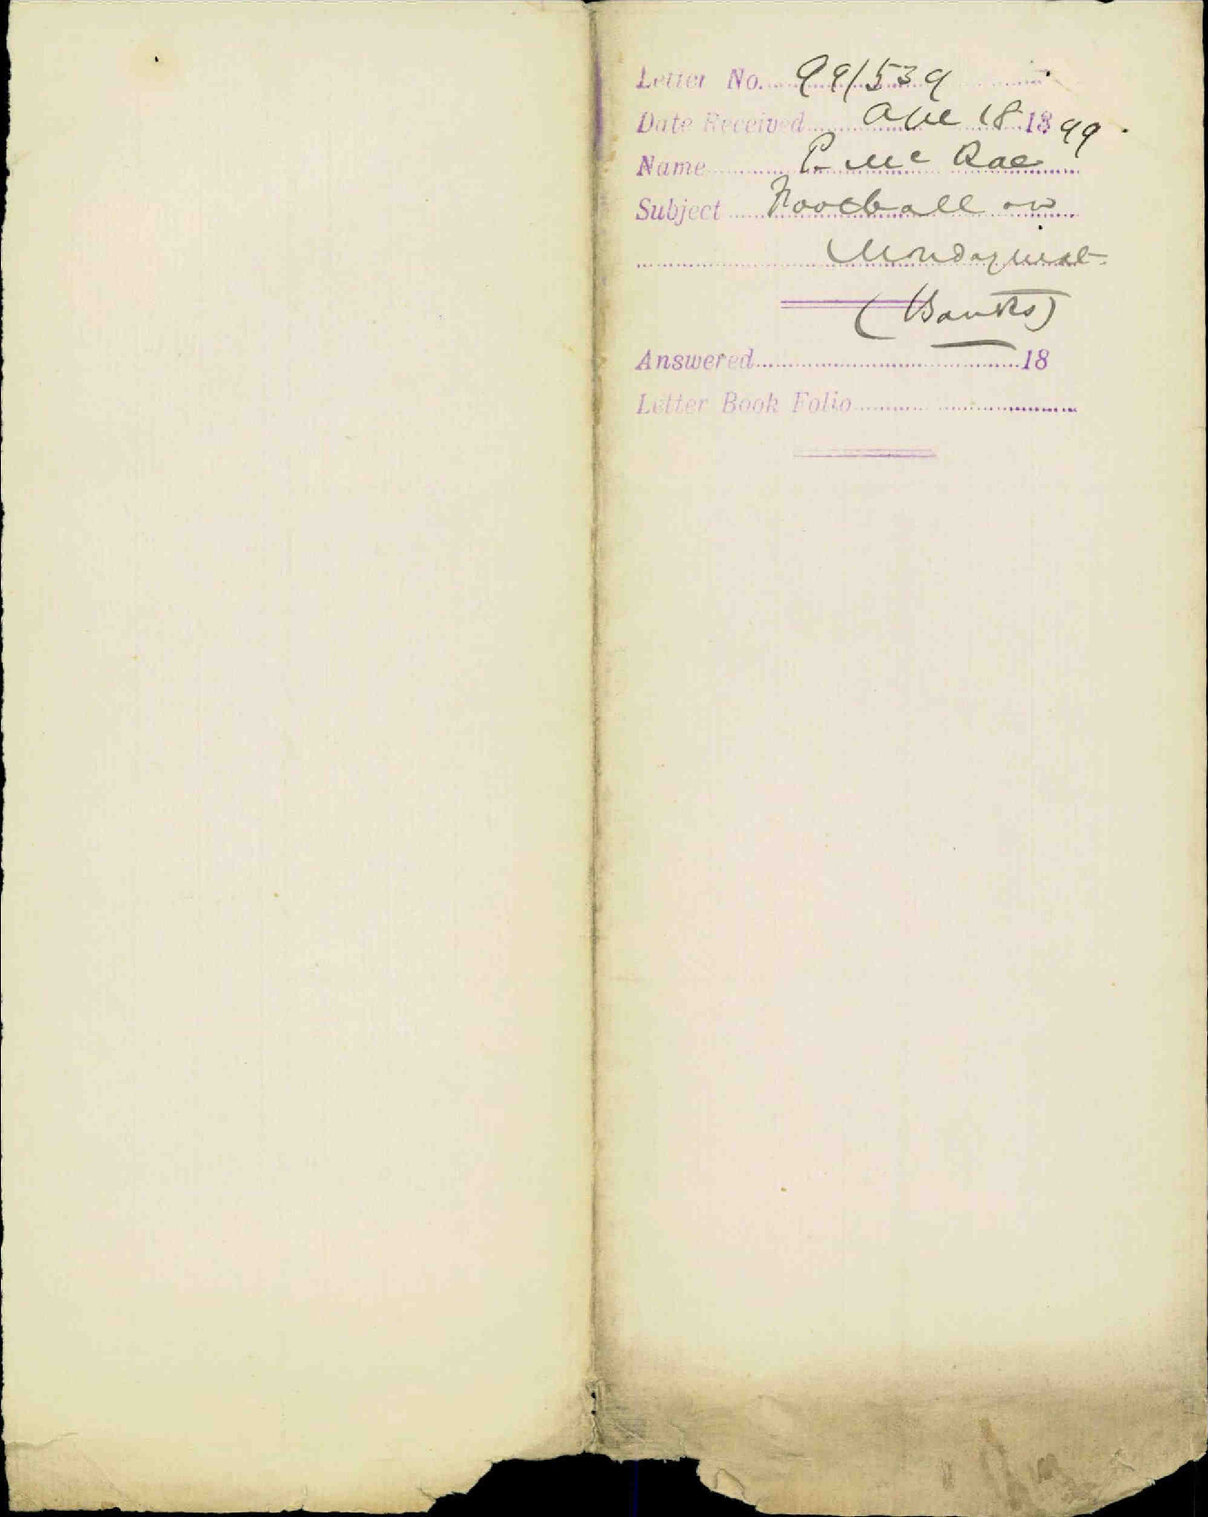 Letter No. 99/539
Date Received Ap 18 1899.
Name P. McRae
Subject Football on
Monday inst
(Banks)
Answered 18
Letter Book Folio